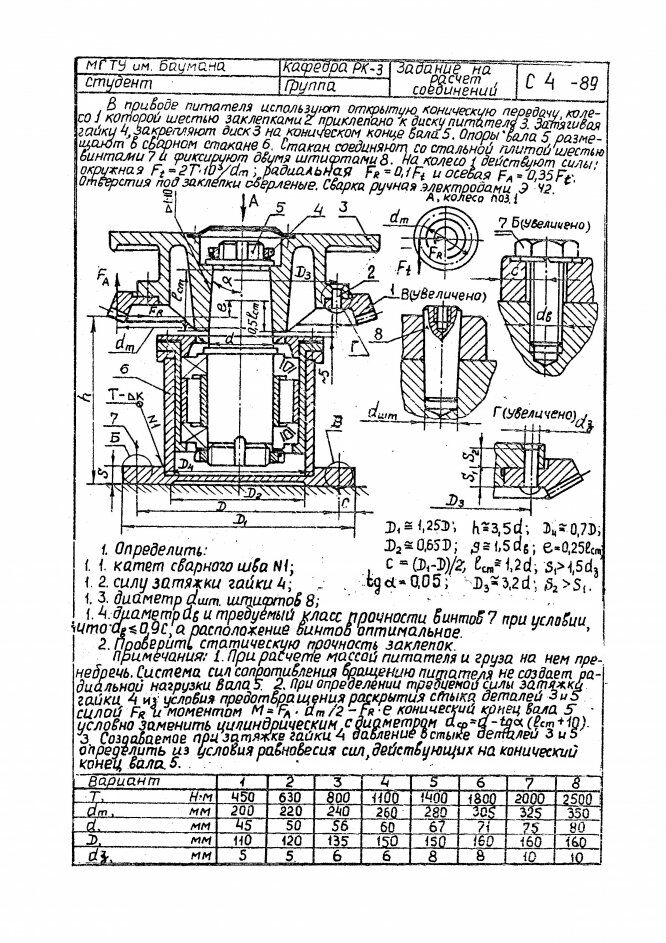 МГТУ им. Баумана
Кафедра РК-3
Задание на расчет соединений
С 4 -89
студент
Группа
В приводе питателя используют открытую коническую передачу, коле-
со 1 которой шестью заклепками 2 приклепано к диску питателя 3. Затягивая
гайку 4, закрепляют диск 3 на коническом конце вала 5. Опоры вала 5 разме-
щают в сварном стакане 6. Стакан соединяют со стальной плитой шестью
винтами 7 и фиксируют двумя штифтами 8. На колесо 1 действуют силы:
окружная Ft = 2T·10³/dm; радиальная FR = 0,1Ft и осевая FA = 0,35Ft.
Отверстия под заклепки сверленые. Сварка ручная электродами Э 42.
А
5
4
3
А, колесо поз.1
dm
FR
Ft
7 Б (увеличено)
C
dв
FA
lст
α
D3
2
1
FR
e
0,5lст
Г
dm
d
S
В (увеличено)
8
dшт
h
6
Т-△К
N1
7
Б
В
S
D4
D2
D
D1
C
Г (увеличено) dз
S2
S1
D3
D1≅1,25D; h≅3,5d; D4≅0,7D;
D2≅0,65D; g≅1,5dв; e=0,25lст
C = (D1-D)/2; lст≅1,2d; S1>1,5dз
tgα=0,05; D3≅3,2d; S2>S1.
1. Определить:
1. 1. катет сварного шва N1;
1. 2. силу затяжки гайки 4;
1. 3. диаметр dшт. штифтов 8;
1. 4. диаметр dв и требуемый класс прочности винтов 7 при условии,
что dв≤0,9C, а расположение винтов оптимальное.
2. Проверить статическую прочность заклепок.
Примечания: 1. При расчете массой питателя и груза на нем пре-
небречь. Система сил сопротивления вращению питателя не создает ра-
диальной нагрузки вала 5. 2. При определении требуемой силы затяжки
гайки 4 из условия предотвращения раскрытия стыка деталей 3 и 5
силой FR и моментом M = FA · dm/2 - FR · e конический конец вала 5
условно заменить цилиндрическим с диаметром dф=d-tgα(lст+10).
3. Создаваемое при затяжке гайки 4 давление в стыке деталей 3 и 5
определить из условия равновесия сил, действующих на конический
конец вала 5.
Вариант 1 2 3 4 5 6 7 8
T, Н·м 450 630 800 1100 1400 1800 2000 2500
dm, мм 200 220 240 260 280 305 325 350
d, мм 45 50 56 60 67 71 75 80
D, мм 110 120 135 150 150 160 160 160
dз, мм 5 5 6 6 8 8 10 10